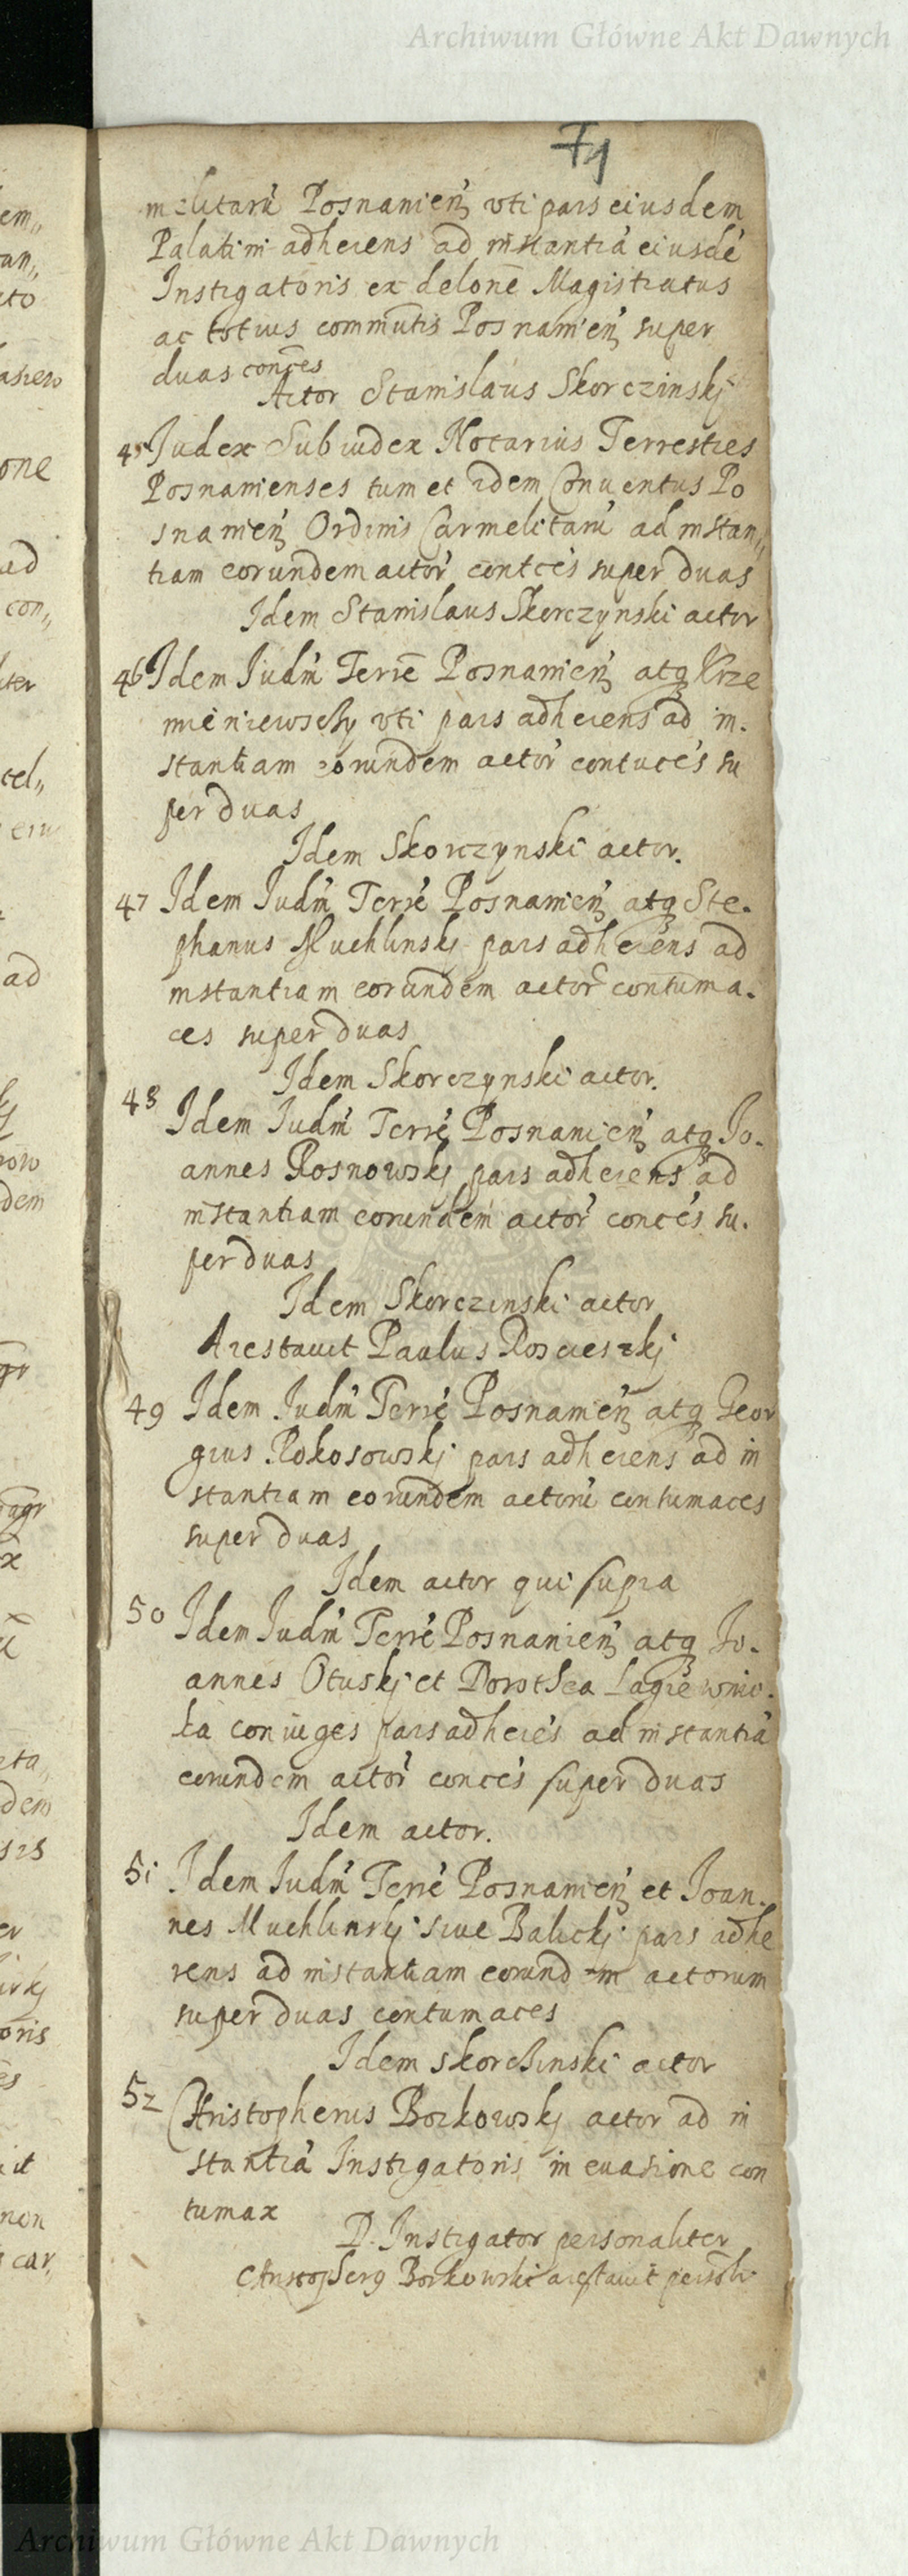 Archiwum Główne Akt Dawnych
71
militarũ Posnanień uti pars eiusdem
Palatini adherens ad instantiã eiusdẽ
Instigatoris ex delone Magistratus
ac totius commũtis Posnanień super
duas conces
Actor Stanislaus Skorczinskj
45 Judex Subiudex Notarius Terrestres
Posnanienses tum et idem Conventus Po
snanień Ordinis Carmelitarũ ad instan„
tiam eorundem actor contces super duas
Idem Stanislaus Skorczynski actor
46 Idem Judm Terre Posnanień atq Krze
mieniewsky uti pars adherens ad in.
stantiam eorundem actor contuces su
per duas
Idem Skorczynski actor.
47 Idem Judm Terre Posnanień atq Ste.
phanus Muchlinskj pars adherens ad
instantiam eorundem actor contuma.
ces super duas
Idem Skorczynski actor.
48
Idem Judm Terre Posnanień atq Jo.
annes Rosnowskj pars adherens ad
instantiam eorundem actor conces su.
per duas
Idem Skorczinski actor
Arestavit Paulus
49 Idem Judm Terre Posnanień atq Geor
gius Rokosowskj pars adherens ad in
stantiam eorundem actorũ contumaces
super duas
Idem actor qui supra
50
Idem Judm Terre Posnanień atq Jo.
annes Otuskj et Dorothea Lagiewnic.
ka coniuges pars adherẽs ad instantiã
eorundem actor conces super duas
Idem actor.
51 Idem Judm Terre Posnanień et Joan.
nes Muchlinskj sive Balickj pars adhe
rens ad instantiam eorundem actorum
super duas contumaces
Idem skorchinski actor
52 Christopherus Borkowskj actor ad in
stantiã Instigatoris in evasione con
tumax
D. Instigator personaliter
Christopherg Borkowski arestavit personlr
Archiwum Główne Akt Dawnych